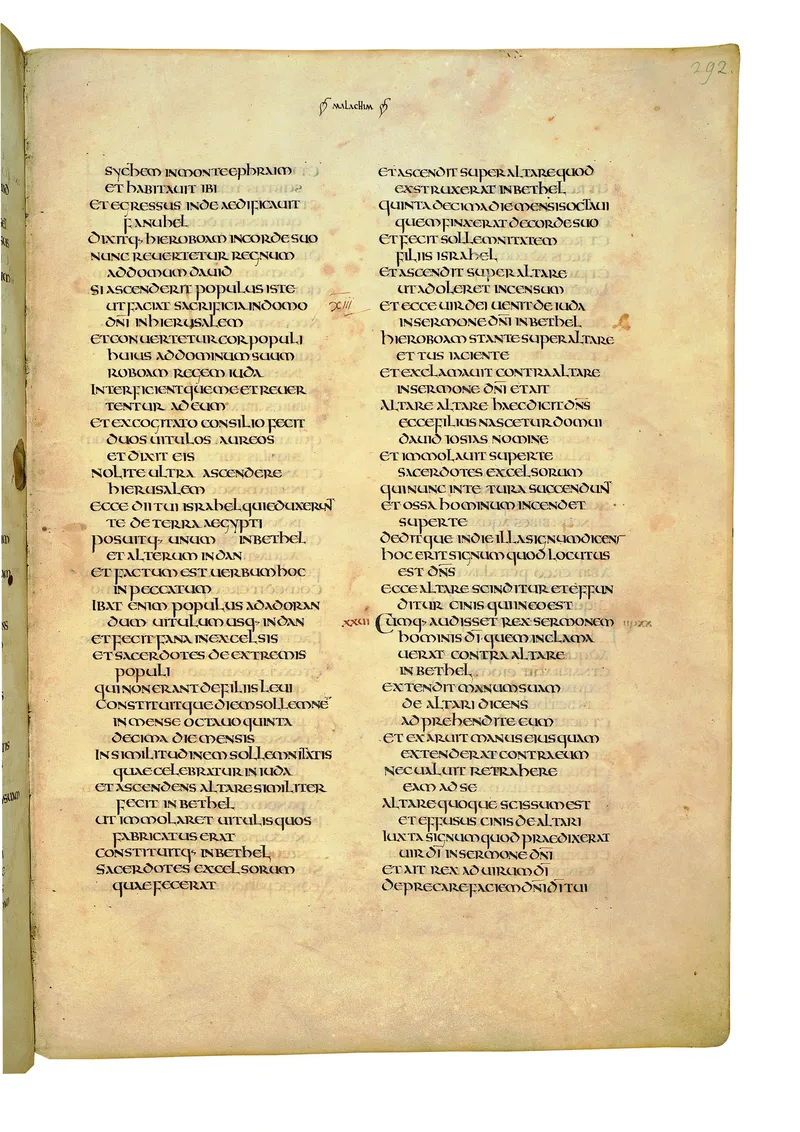 292.
MALACHIM
SYCHEM IN MONTE EPHRAIM
ET HABITAUIT IBI
ET EGRESSUS INDE AEDIFICAUIT
FANUHEL
DIXITQ· HIEROBOAM IN CORDE SUO
NUNC REUERTETUR REGNUM
AD DOMUM DAUID
SI ASCENDERIT POPULUS ISTE
UT FACIAT SACRIFICIA IN DOMO
DN̄I IN HIERUSALEM
ET CONUERTETUR COR POPULI
HUIUS AD DOMINUM SUUM
ROBOAM REGEM IUDA
INTERFICIENT QUE ME ET REUER
TENTUR AD EUM
ET EXCOGITATO CONSILIO FECIT
DUOS UITULOS AUREOS
ET DIXIT EIS
NOLITE ULTRA ASCENDERE
HIERUSALEM
ECCE DII TUI ISRAHEL QUI EDUXERUNT
TE DE TERRA AEGYPTI
POSUITQ· UNUM IN BETHEL
ET ALTERUM IN DAN
ET FACTUM EST UERBUM HOC
IN PECCATUM
IBAT ENIM POPULUS AD ADORAN
DUM UITULUM USQ· IN DAN
ET FECIT FANA IN EXCELSIS
ET SACERDOTES DE EXTREMIS
POPULI
QUI NON ERANT DE FILIIS LEUI
CONSTITUITQUE DIEM SOLLEMNE
IN MENSE OCTAUO QUINTA
DECIMA DIE MENSIS
IN SIMILITUDINEM SOLLEMNITATIS
QUAE CELEBRATUR IN IUDA
ET ASCENDENS ALTARE SIMILITER
FECIT IN BETHEL
UT IMMOLARET UITULIS QUOS
FABRICATUS ERAT
CONSTITUITQ· IN BETHEL
SACERDOTES EXCELSORUM
QUAE FECERAT
ET ASCENDIT SUPER ALTARE QUOD
EXSTRUXERAT IN BETHEL
QUINTA DECIMA DIE MENSIS OCTAUI
QUEM FINXERAT DE CORDE SUO
ET FECIT SOLLEMNITATEM
FILIIS ISRAHEL
ET ASCENDIT SUPER ALTARE
UT ADOLERET INCENSUM
XIII ET ECCE UIR DEI UENIT DE IUDA
IN SERMONE DN̄I IN BETHEL
HIEROBOAM STANTE SUPER ALTARE
ET TUS IACIENTE
ET EXCLAMAUIT CONTRA ALTARE
IN SERMONE DN̄I ET AIT
ALTARE ALTARE HAEC DICIT DN̄S
ECCE FILIUS NASCETUR DOMUI
DAUID IOSIAS NOMINE
ET IMMOLAUIT SUPER TE
SACERDOTES EXCELSORUM
QUI NUNC IN TE TURA SUCCENDUNT
ET OSSA HOMINUM INCENDET
SUPER TE
DEDITQUE IN DIE ILLA SIGNUM DICENS
HOC ERIT SIGNUM QUOD LOCUTUS
EST DN̄S
ECCE ALTARE SCINDITUR ET EFFUN
DITUR CINIS QUI IN EO EST
XXVII CUMQ· AUDISSET REX SERMONEM
HOMINIS DĪ QUEM INCLAMA
UERAT CONTRA ALTARE
IN BETHEL
EXTENDIT MANUM SUAM
DE ALTARI DICENS
ADPREHENDITE EUM
ET EXARUIT MANUS EIUS QUAM
EXTENDERAT CONTRA EUM
NEC UALUIT RETRAHERE
EAM AD SE
ALTARE QUOQUE SCISSUM EST
ET EFFUSUS CINIS DE ALTARI
IUXTA SIGNUM QUOD PRAEDIXERAT
UIR DĪ IN SERMONE DN̄I
ET AIT REX AD UIRUM DĪ
DEPRECARE FACIEM DN̄I DĪ TUI